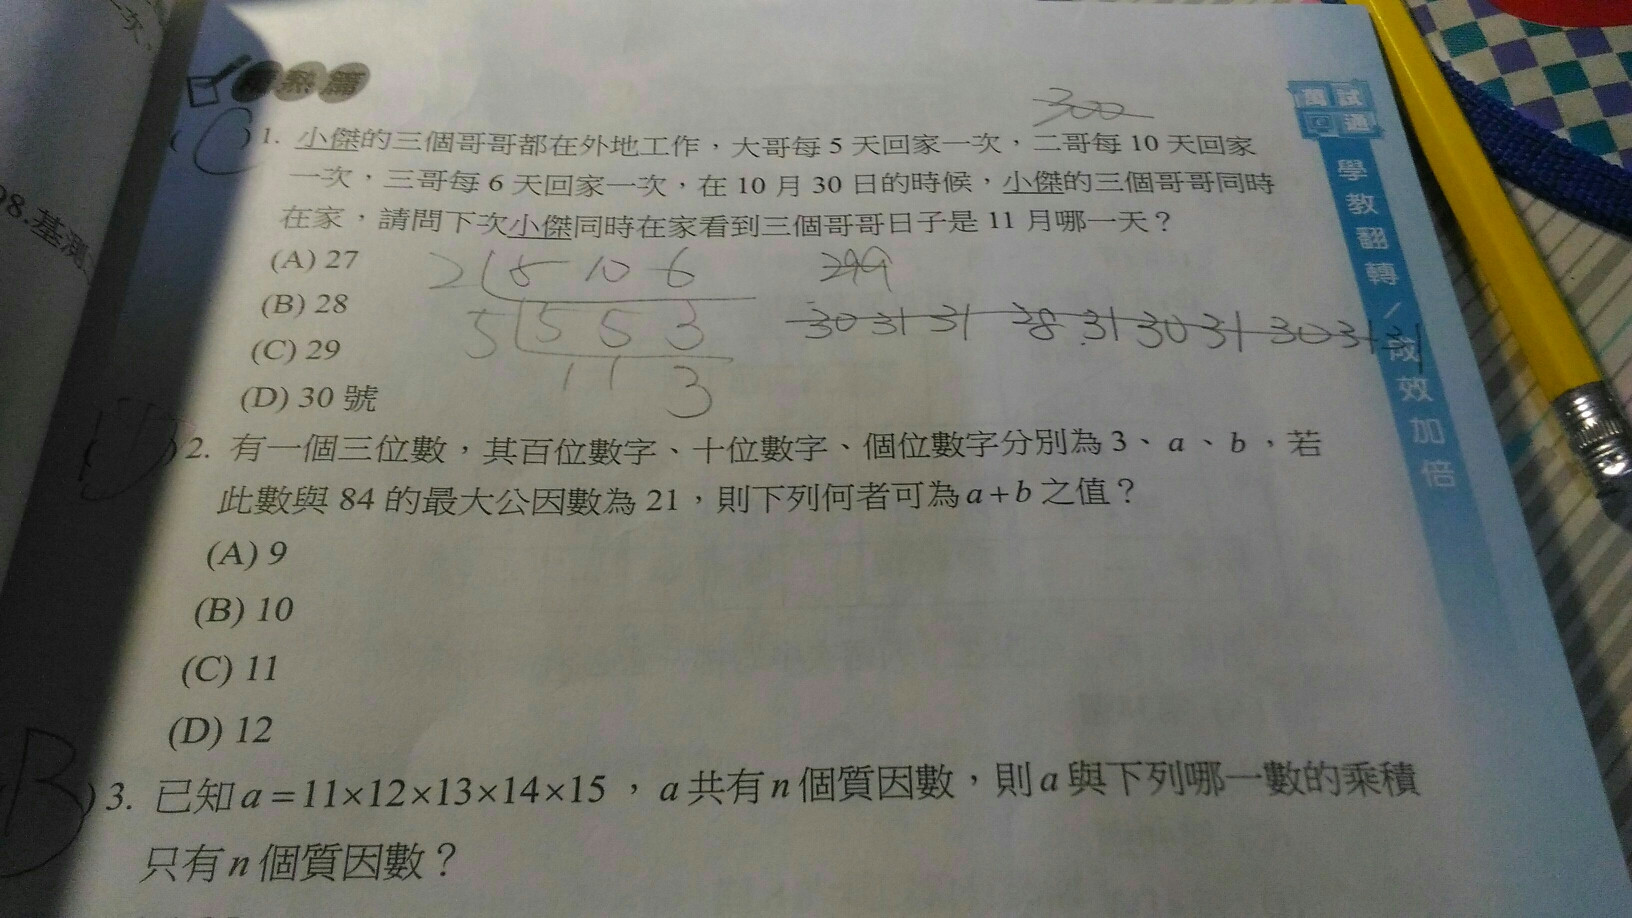 次、
98.基測
熱篇
300
1. 小傑的三個哥哥都在外地工作,大哥每 5 天回家一次,二哥每 10 天回家
一次,三哥每 6 天回家一次,在 10 月 30 日的時候,小傑的三個哥哥同時
在家,請問下次小傑同時在家看到三個哥哥日子是 11 月哪一天?
(A) 27
(B) 28
(C) 29
(D) 30 號
2 5 10 6
5 5 5 3
1 1 3
299
30 31 31 28 31 30 31 30 31 31
2. 有一個三位數,其百位數字、十位數字、個位數字分別為 3、a、b,若
此數與 84 的最大公因數為 21,則下列何者可為 a+b 之值?
(A) 9
(B) 10
(C) 11
(D) 12
B
)3. 已知 a=11×12×13×14×15,a 共有 n 個質因數,則 a 與下列哪一數的乘積
只有 n 個質因數?
試
通
學教翻轉/成效加倍